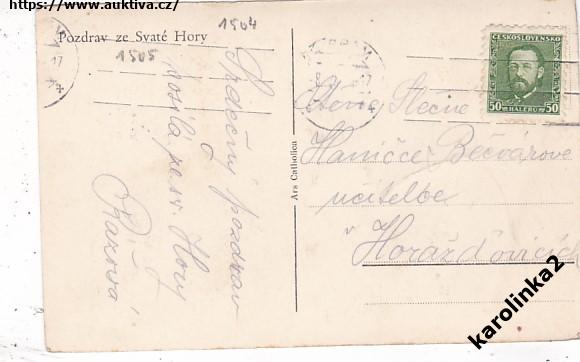 https://www.auktiva.cz/
Pozdrav ze Svaté Hory
1504
1505
Srdečný pozdrav
posílá
Hory
Ars Catholica
ČESKOSLOVENSKO
50 HALÉŘŮ 50
Slečně
Haničce Bečvářové
učitelce
v
Horažďovicích
karolinka2